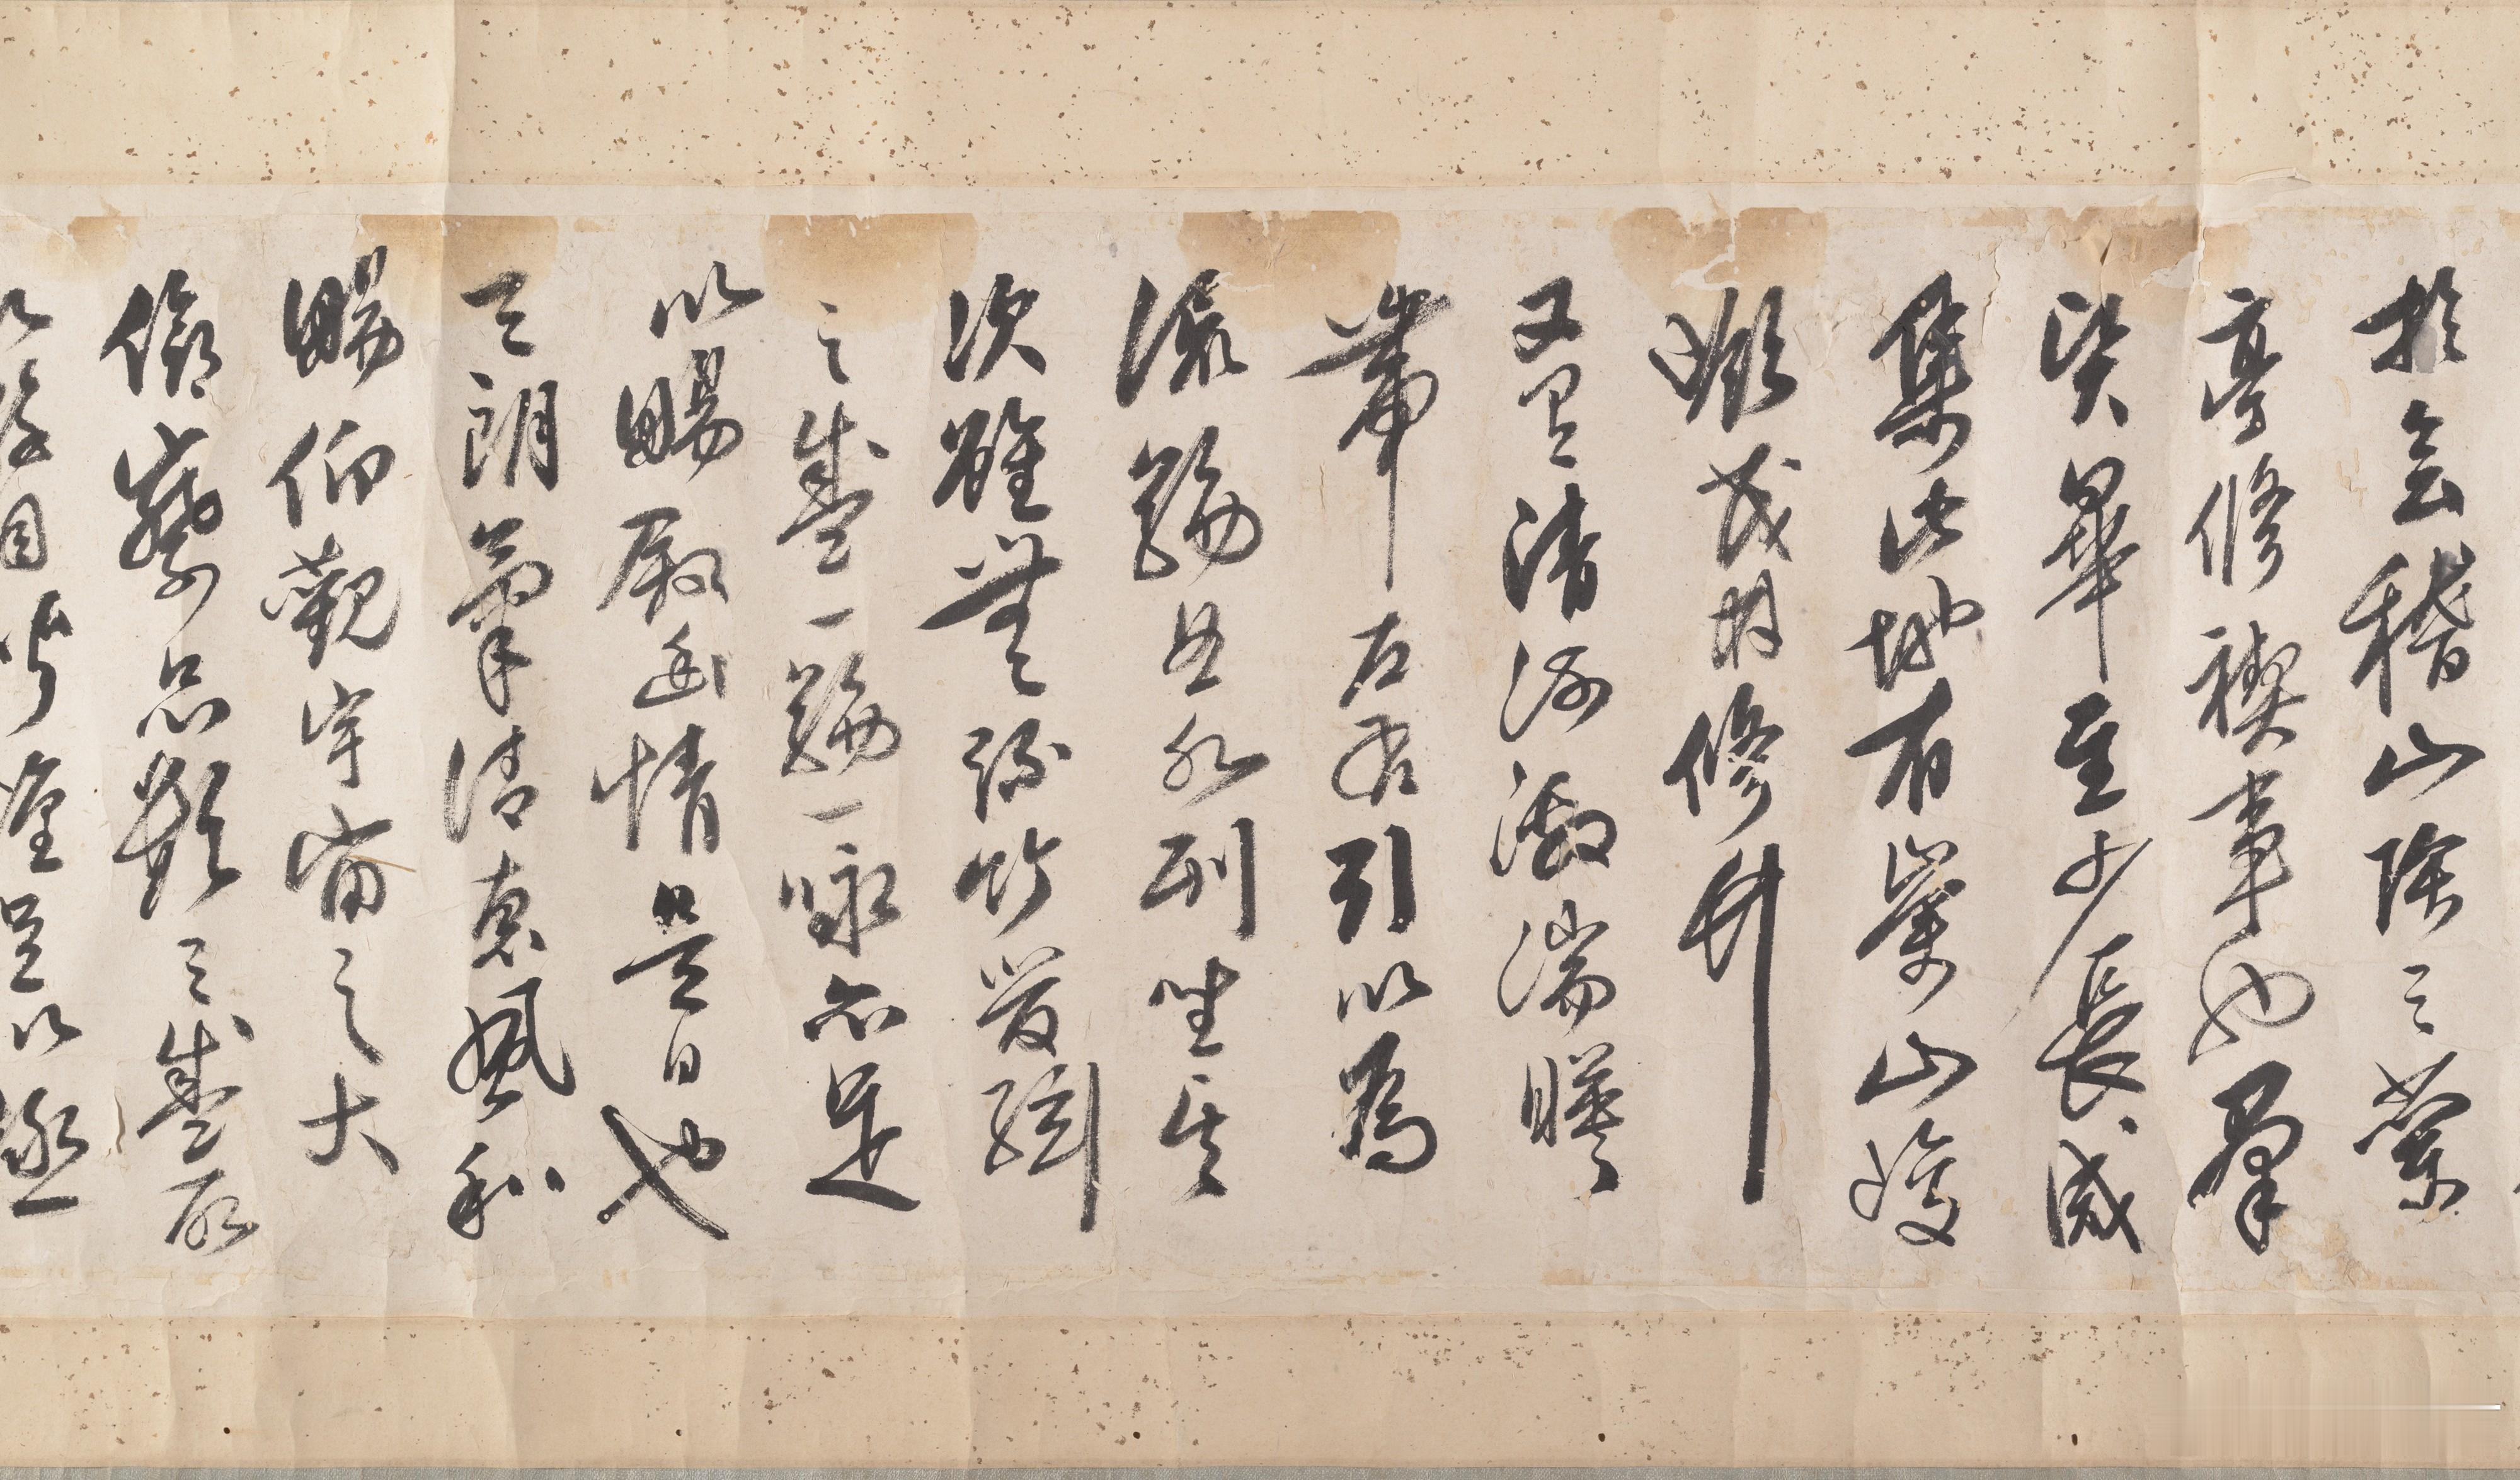 於会稽山陰之蘭
亭修禊事也羣
賢畢至少長咸
集此地有崇山峻
嶺茂林修竹
又有清流激湍暎
帶左右引以為
流觴曲水列坐其
次雖無絲竹管絃
之盛一觴一詠亦足
以暢敘幽情是日也
天朗氣清惠風和
暢仰觀宇宙之大
俯察品類之盛所
以遊目騁懷足以極